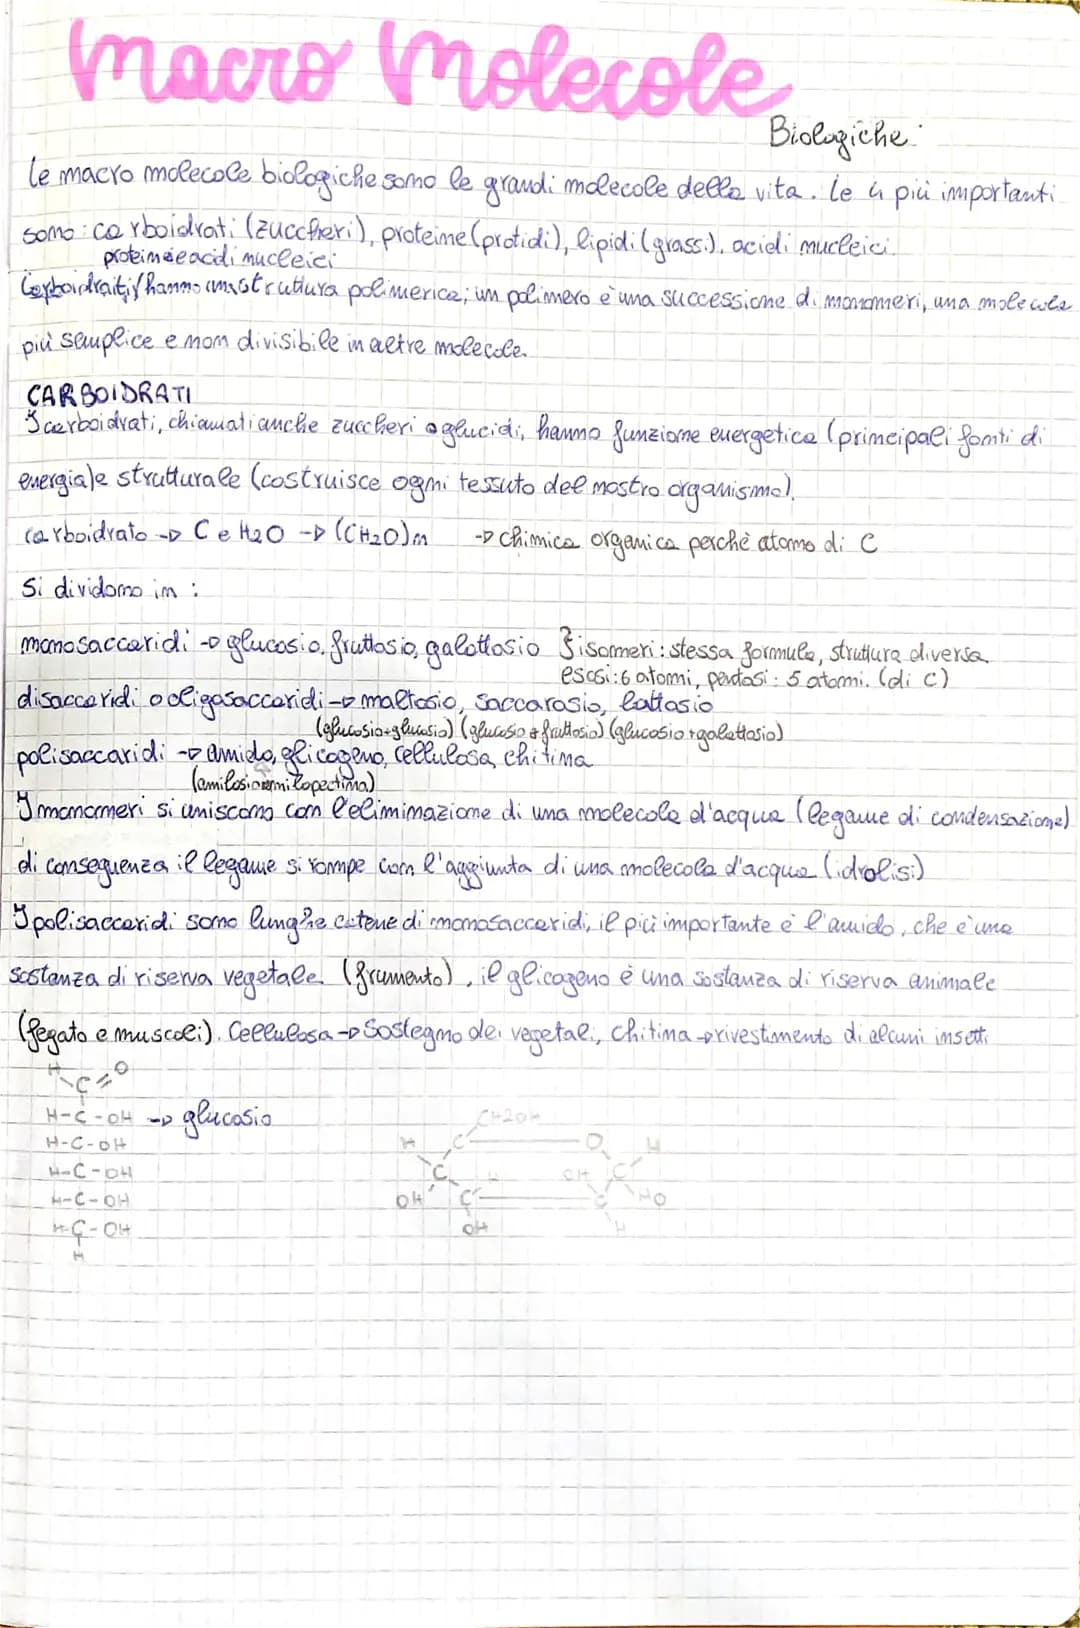 Macro Molecole
Biologiche:
Le macro molecole biologiche sono le grandi molecole della vita. Le 4 più importanti
sono: carboidrati (zuccheri), proteine (protidi), lipidi (grassi), acidi nucleici.
proteine e acidi nucleici
Carboidrati, hanno una struttura polimerica; un polimero è una successione di monomeri, una molecola
più semplice e non divisibile in altre molecole.
CARBOIDRATI
I carboidrati, chiamati anche zuccheri o glucidi, hanno funzione energetica (principali fonti di
energia) e strutturale (costruisce ogni tessuto del nostro organismo).
carboidrato → C e H2O → (CH2O)n → chimica organica perchè atomo di C
Si dividono in :
monosaccaridi → glucosio, fruttosio, galattosio } isomeri: stessa formula, struttura diversa
esosi: 6 atomi, pentosi: 5 atomi. (di C)
disaccaridi o oligosaccaridi → maltosio, saccarosio, lattosio
(glucosio+glucosio) (glucosio + fruttosio) (glucosio + galattosio)
polisaccaridi → amido, glicogeno, cellulosa, chitina
(amilosio amilopectina)
I monomeri si uniscono con l'eliminazione di una molecola d'acqua (legame di condensazione)
di conseguenza il legame si rompe con l'aggiunta di una molecola d'acqua (idrolisi)
I polisaccaridi sono lunghe catene di monosaccaridi, il più importante è l'amido, che è una
sostanza di riserva vegetale (frumento), il glicogeno è una sostanza di riserva animale
(fegato e muscoli). Cellulosa → Sostegno dei vegetali, chitina → rivestimento di alcuni insetti
H O
C
H-C-OH → glucosio
H-C-OH
H-C-OH
H-C-OH
H-C-OH
H
CH2OH
H C O H
C H OH C
OH C C HO
OH H